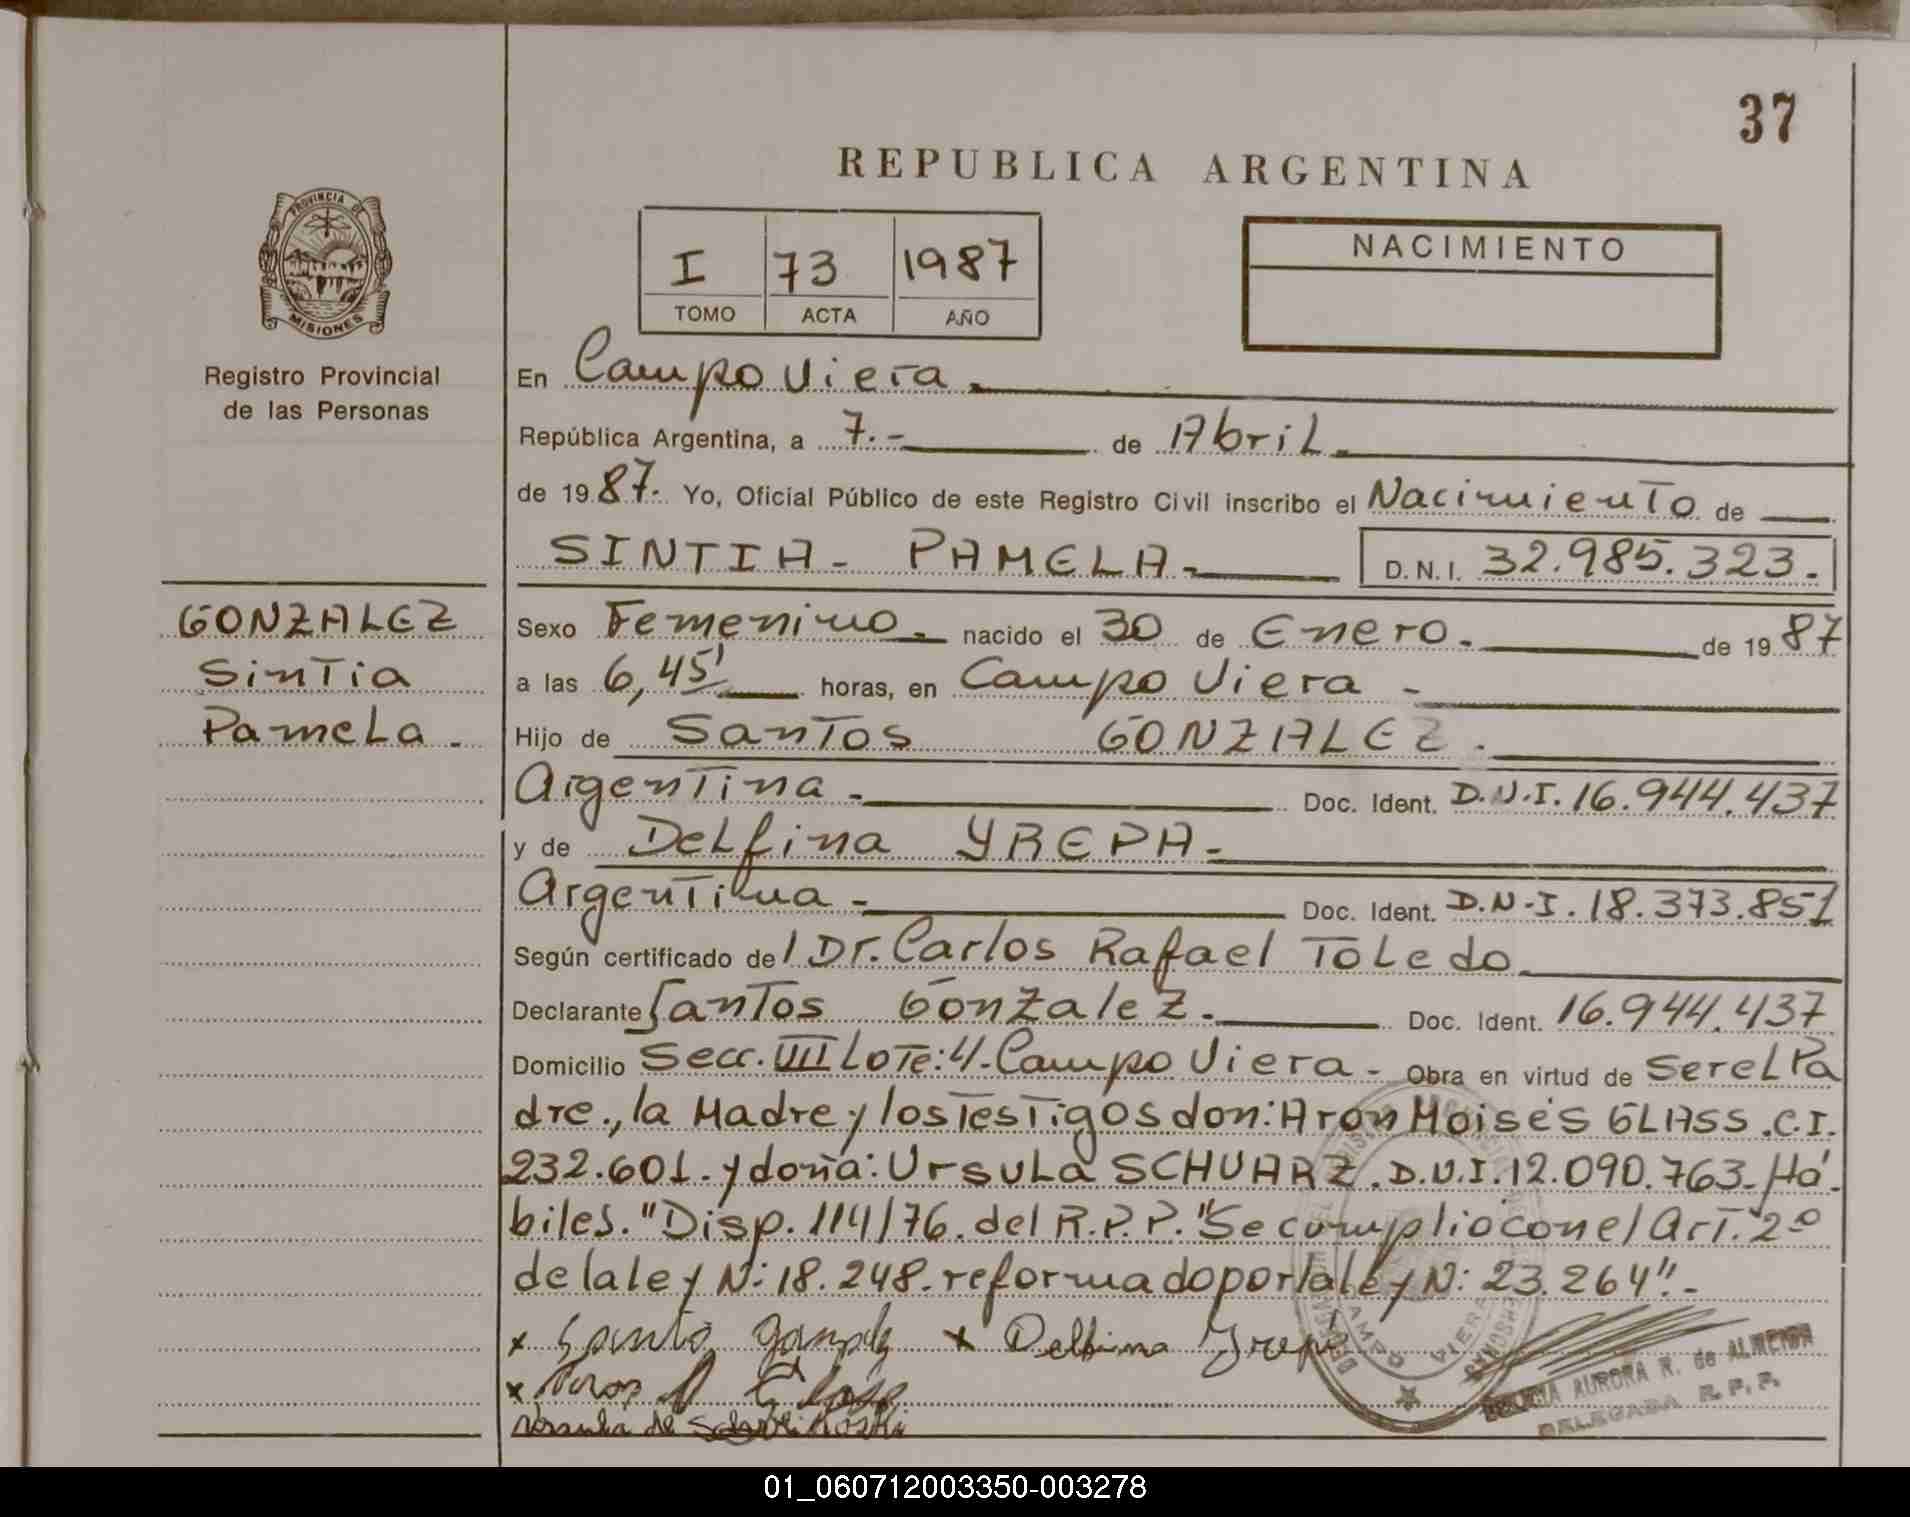 37
REPUBLICA ARGENTINA
PROVINCIA DE
MISIONES
Registro Provincial
de las Personas
I 73 1987
TOMO ACTA AÑO
NACIMIENTO
En Campo Viera.
República Argentina, a 7.- de Abril.
de 1987. Yo, Oficial Público de este Registro Civil inscribo el Nacimiento de
SINTIA - PAMELA - D.N.I. 32.985.323.
GONZALEZ
Sintia
Pamela.
Sexo Femenino. nacido el 30 de Enero. de 1987
a las 6,45' horas, en Campo Viera -
Hijo de Santos GONZALEZ.
Argentina - Doc. Ident. D.N.I. 16.944.437
y de Delfina YREPA -
Argentina - Doc. Ident. D.N.I. 18.373.851
Según certificado del Dr. Carlos Rafael Toledo
Declarante Santos Gonzalez. Doc. Ident. 16.944.437
Domicilio Secc. VIII Lote: 4. Campo Viera - Obra en virtud de ser el Pa
dre., la Madre y los Testigos don: Aron Moisés GLASS. C.I.
232.601. y doña: Ursula SCHUARZ. D.N.I. 12.090.763. Há.
biles. "Disp. 114/76. del R.P.P." "Se cumplio con el Art. 2º
de la ley N: 18.248. reformado por la ley N: 23.264".-
x Santo x Delfina Yrepa
x
CAMPO VIERA
AURORA R. de ALMEIDA
DELEGADA R.P.P.
01_060712003350-003278